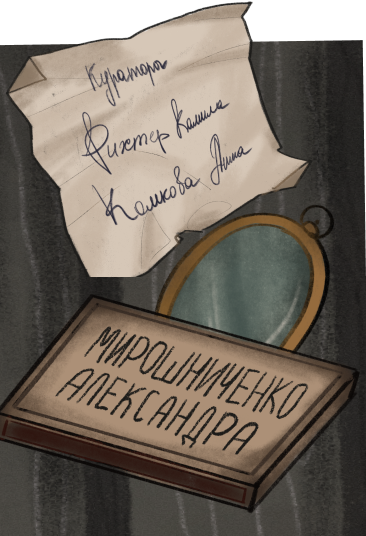 Кураторы
Рихтер Камила
Колкова Анна
МИРОШНИЧЕНКО
АЛЕКСАНДРА